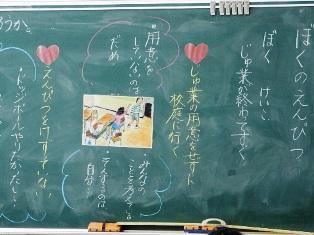 ぼくのえんぴつ
ぼく
けいこ
じゅ業が終わってすぐ
じゅ業の用意をせずに
校庭に行く
・用意を
していないのは
だめ
・みんなの
ことを考えてる
自分
えんぴつをけずすない
・ドッジボールやりたかったし
ろうか。